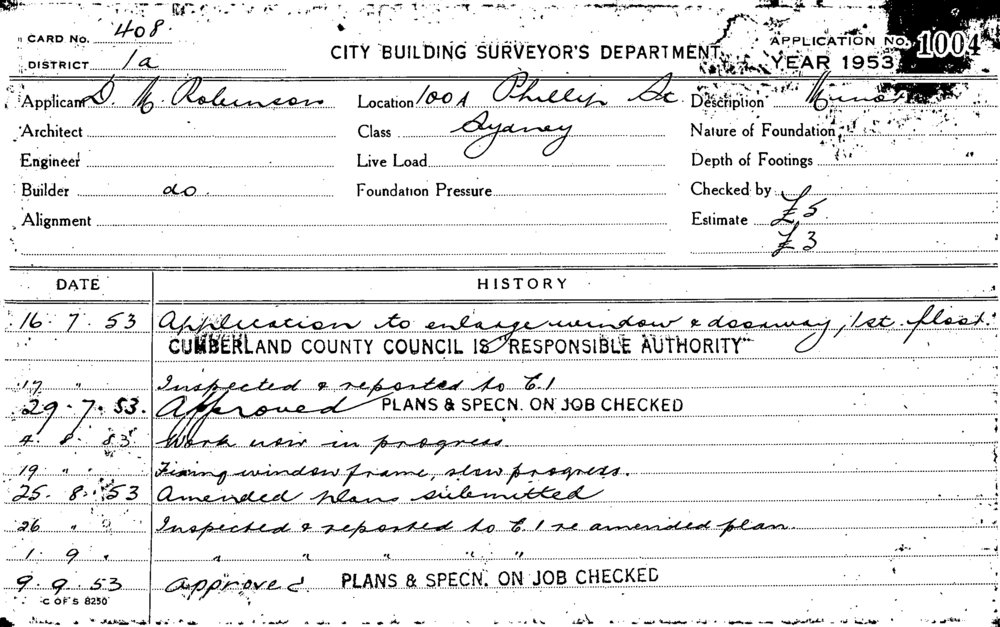 CARD No. 408. CITY BUILDING SURVEYOR'S DEPARTMENT APPLICATION NO. 1004
DISTRICT 1a YEAR 1953
Applicant D. M. Robinson Location 100A Phillip St. Description
Architect Class Sydney Nature of Foundation
Engineer Live Load Depth of Footings "
Builder do. Foundation Pressure Checked by
Alignment Estimate £5
£3
DATE HISTORY
16. 7. 53 Application to enlarge window & doorway, 1st floor.
CUMBERLAND COUNTY COUNCIL IS "RESPONSIBLE AUTHORITY"
17 " Inspected & reported to E.I
29. 7. 53. Approved PLANS & SPECN. ON JOB CHECKED
4. 8. 53 Work now in progress.
19 " " Fixing window frame, slow progress.
25. 8. 53 Amended plans submitted
26 " " Inspected & reported to E.I re amended plan.
1. 9 " " " " " "
9. 9. 53 Approved PLANS & SPECN. ON JOB CHECKED
C OF S 8250